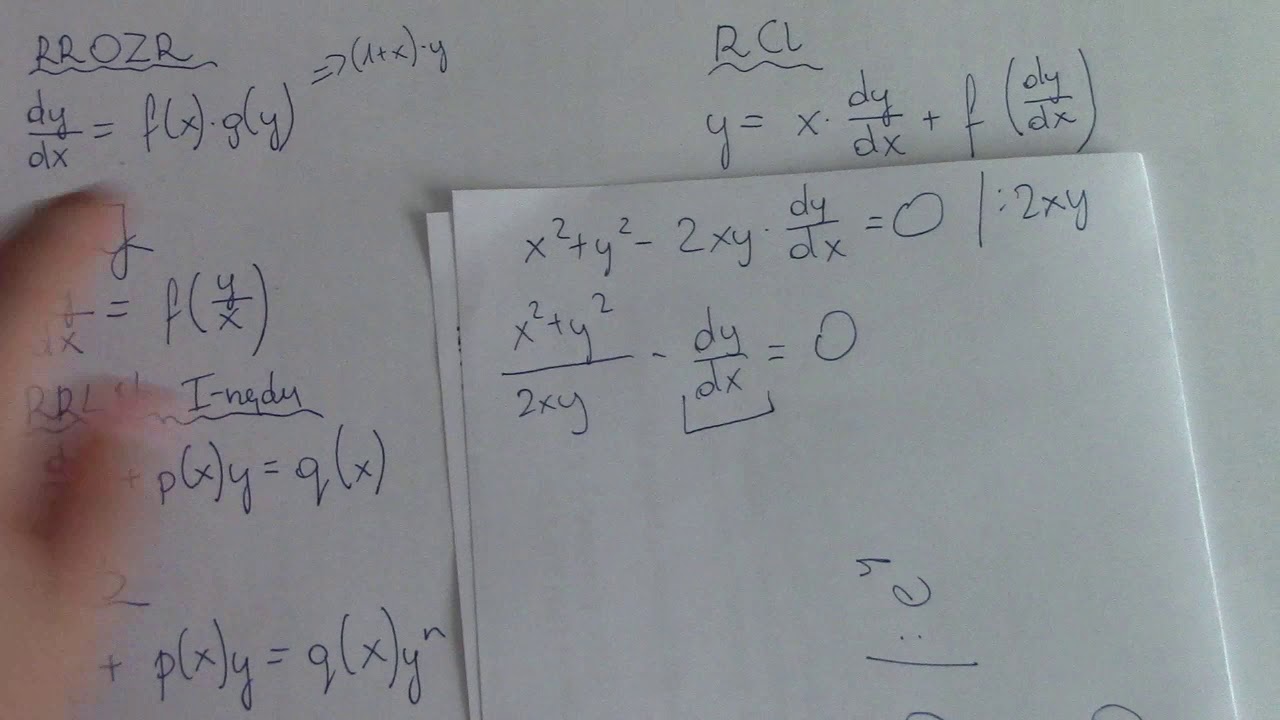 RROZR
⇒(1+x)·y
dy/dx = f(x)·g(y)
= f(y/x)
I-rzędu
+ p(x)y = q(x)
+ p(x)y = q(x)yⁿ
RCL
y = x·dy/dx + f(dy/dx)
x²+y² - 2xy·dy/dx = 0 |:2xy
(x²+y²)/(2xy) - dy/dx = 0